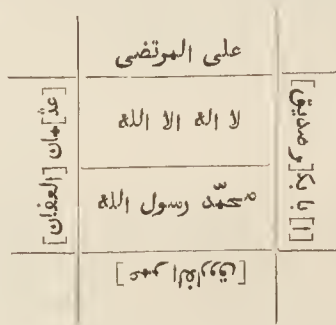 علی المرتضی
لا اله الا الله
محمّد رسول الله
[عمر الفاروق]
[ا] با بک[ر صدیق]
عثـ[ـمان] [العفان]